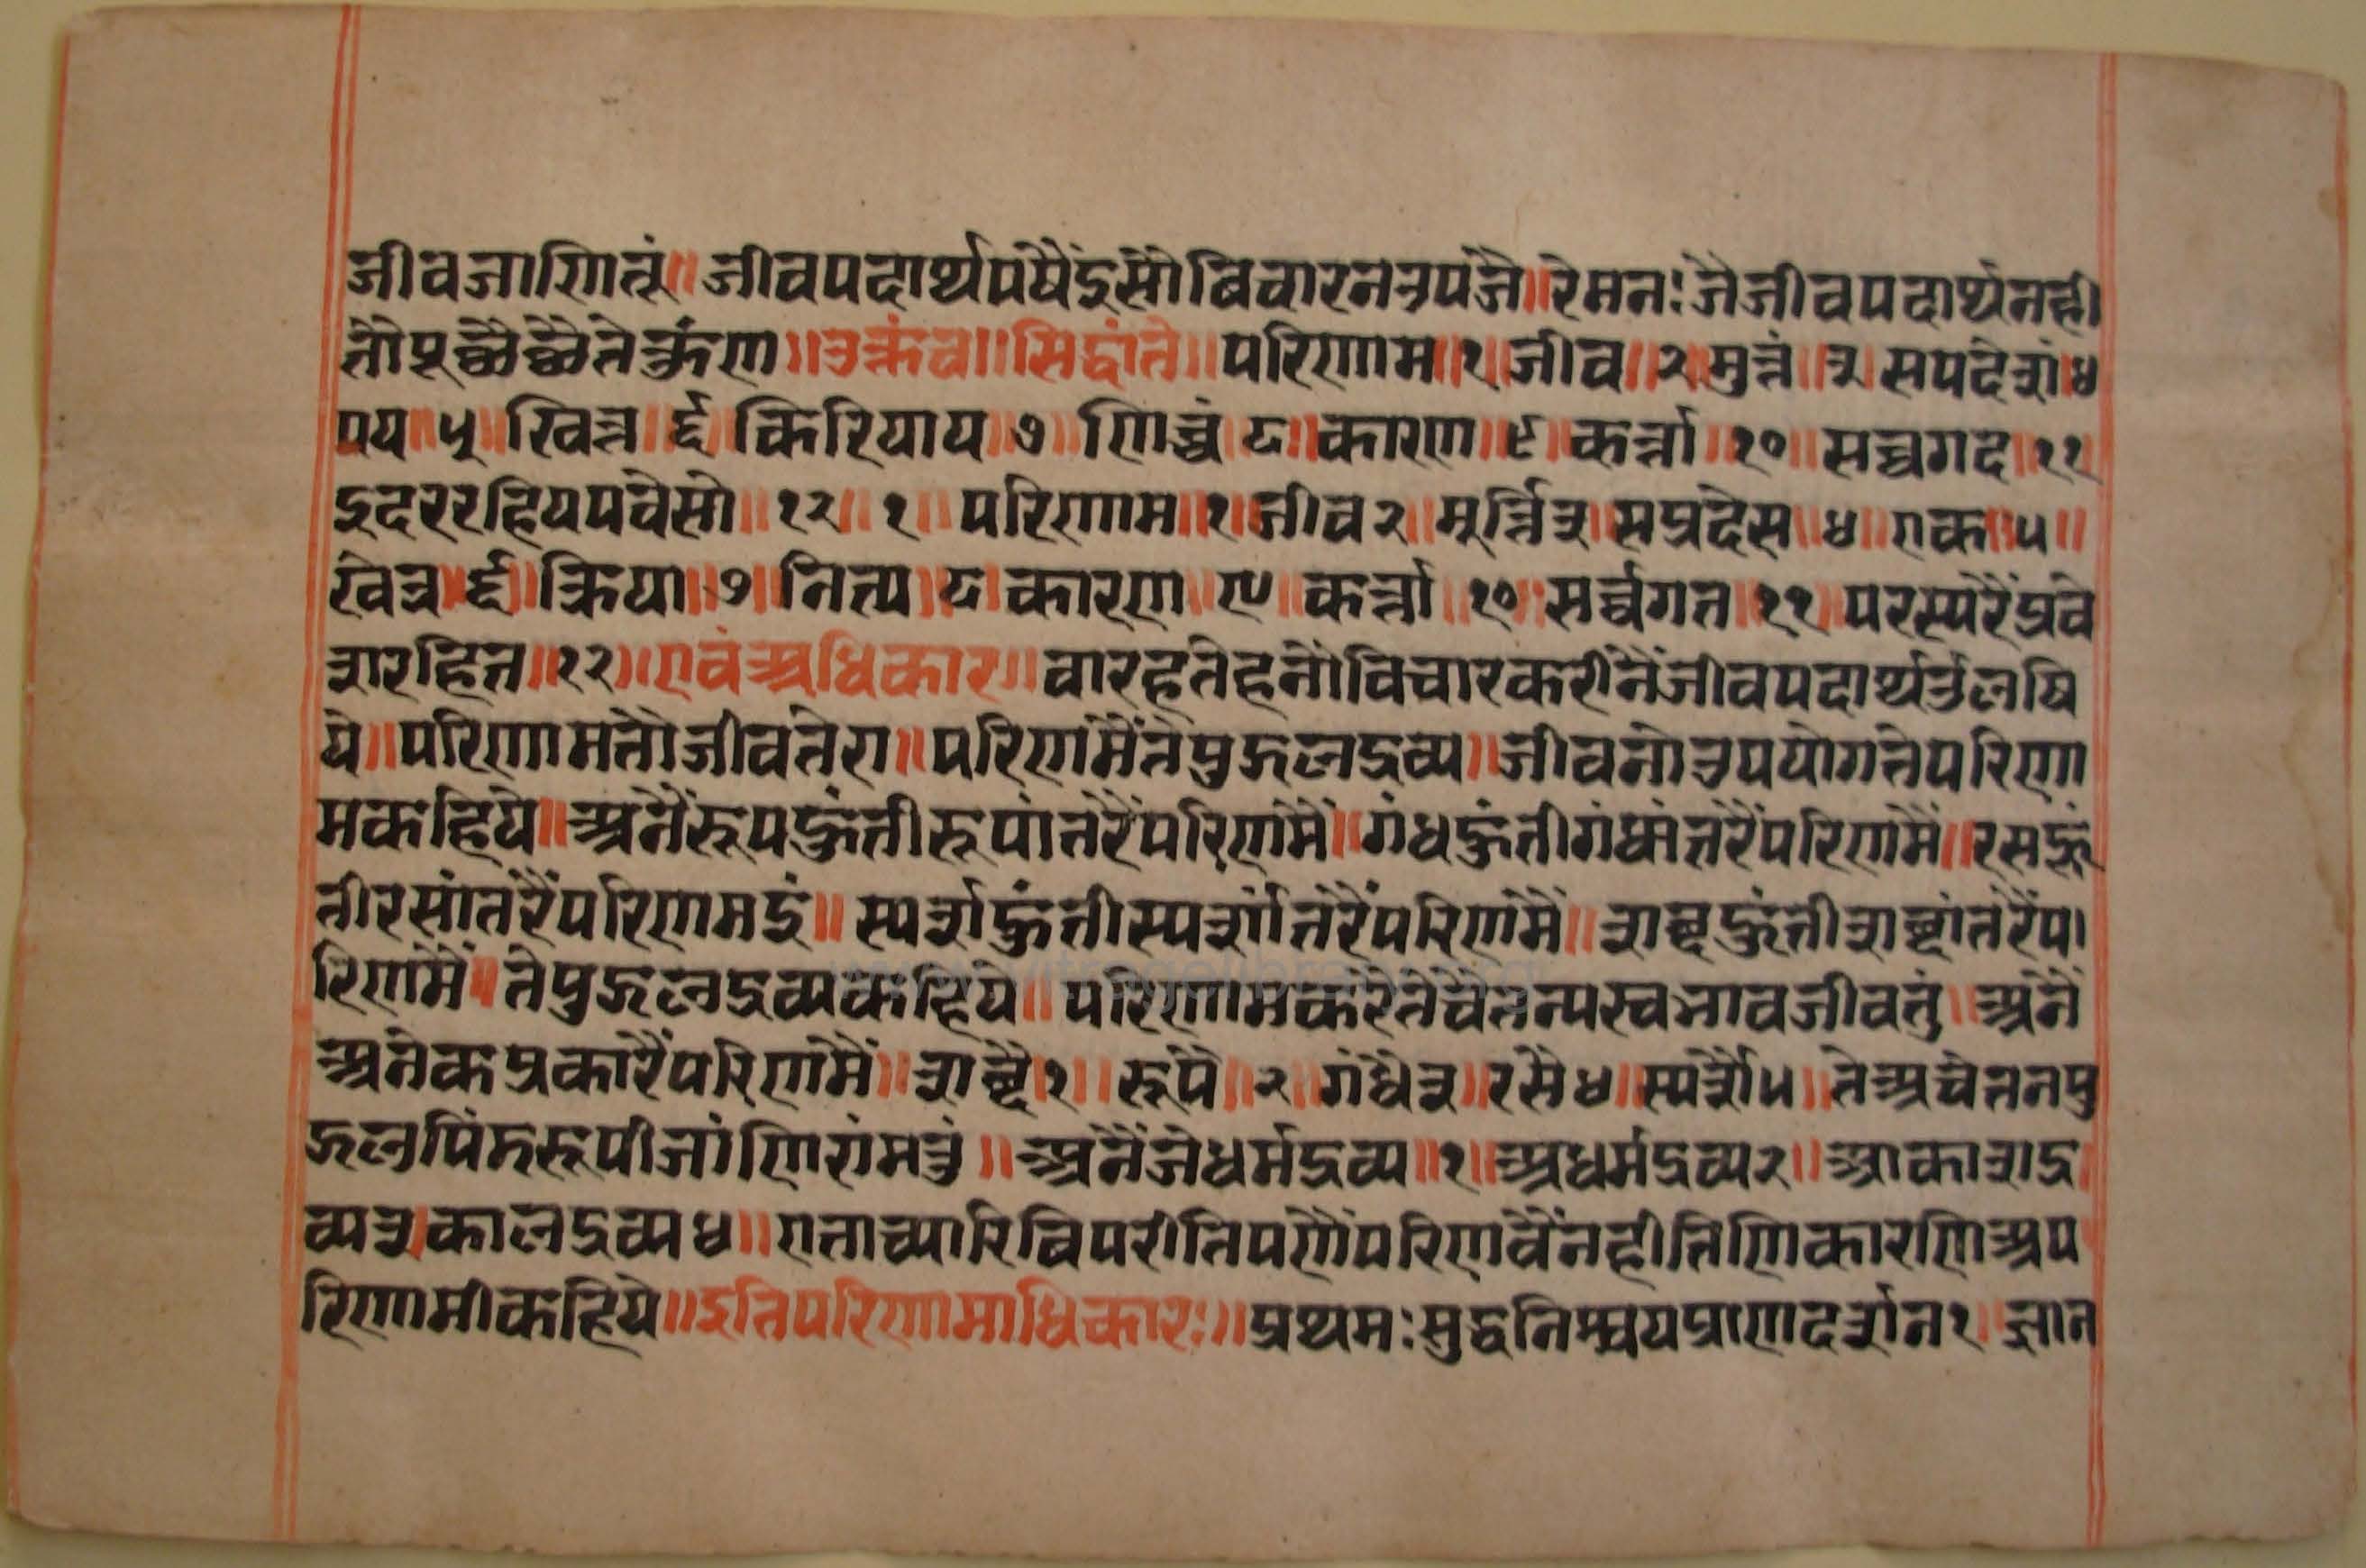 जीवजाणितूं॥ जीवपदार्थपषैंइसौविचारनउपजै॥रेमनः जैजीवपदार्थनही
तौपूछैछैतेकुंण॥उक्तंच॥सिद्धांते॥परिणाम॥१॥जीव॥२॥मुत्तं॥३॥सपदेशं॥४
पय॥५॥खित्त॥६॥किरियाय॥७॥णिच्चं॥८॥कारण॥९॥कर्त्ता॥१०॥सव्वगद॥११
इदररहियपवेसो॥१२॥१॥परिणाम॥१॥जीव२॥मूर्त्ति३॥सप्रदेस॥४॥एक॥५॥
खेत्र॥६॥क्रिया॥७॥नित्य॥८॥कारण॥९॥कर्त्ता॥१०॥सर्व्वगत॥११॥परस्परैंप्रवे
शरहित॥१२॥एवंअधिकार॥बारहतेहनौविचारकरीनैंजीवपदार्थउलषि
ये॥परिणामतौजीवतेरा॥परिणमैंतेपुद्गलद्रव्य॥जीवनोउपयोगतेपरिणा
मकहिये॥अनैंरूपहुंतीरूपांतरैंपरिणमैं॥गंधहुंतीगंधांतरैंपरिणमैं॥रसहुं
तीरसांतरैंपरिणमइं॥स्पर्शहुंतीस्पर्शांतरैंपरिणमैं॥शब्दहुंतीशब्दांतरैंप
रिणमैं॥तेपुद्गलद्रव्यकहिये॥परिणामकरेतेचैतन्यस्वभावजीवतुं॥अनैं
अनेकप्रकारैंपरिणमैं॥शब्दै॥१॥रूपै॥२॥गंधै३॥रसै४॥स्पर्शै५॥तेअचेतनपु
द्गलपिंडरूपीजांणिरांमतुं॥अनैंजेधर्मद्रव्य॥१॥अधर्मद्रव्य२॥आकाशद्र
व्य३॥कालद्रव्य४॥एताच्यारिविपरीतिपणैंपरिणवैंनहीतिणिकारणिअप
रिणामीकहिये॥इतिपरिणामाधिकारः॥प्रथमःसुद्धनिश्चयप्राणदर्शन१॥ज्ञान